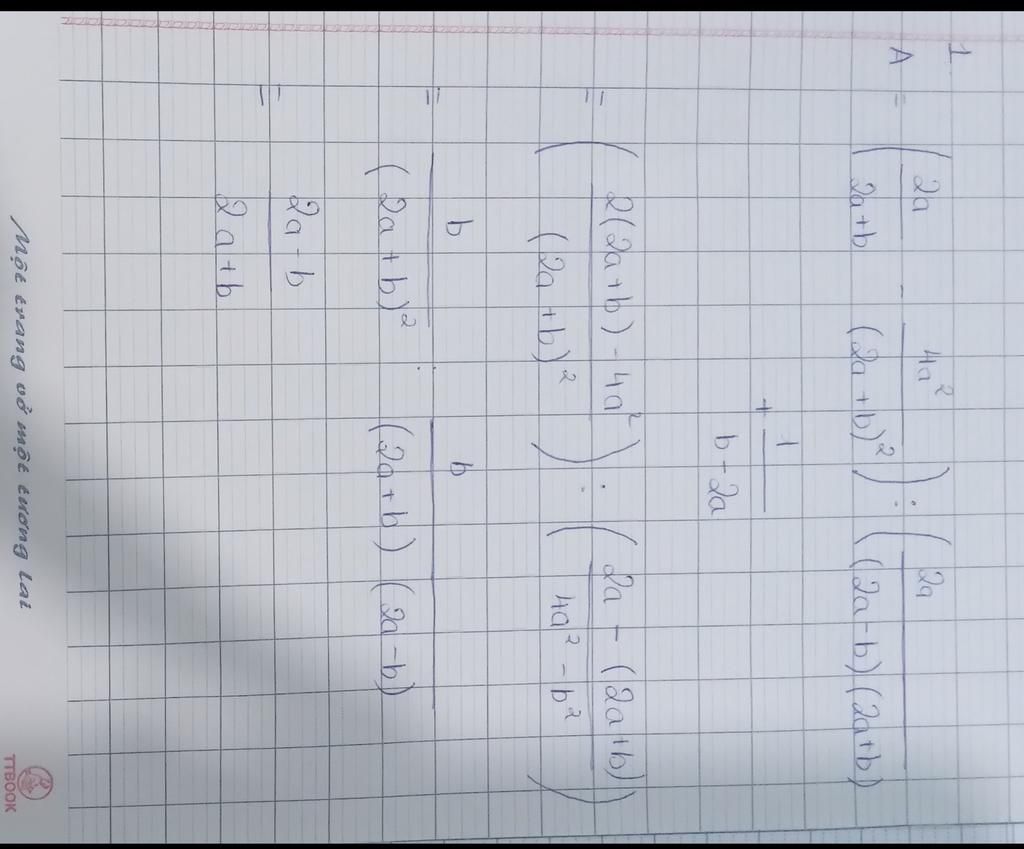 1
A = ( 2a/(2a+b) - 4a²/(2a+b)² ) : ( 2a/((2a-b)(2a+b))
+ 1/(b-2a)
= ( (2(2a+b) - 4a²)/(2a+b)² ) : ( (2a - (2a+b))/(4a² - b²) )
= b/(2a+b)² : b/((2a+b)(2a-b))
= (2a-b)/(2a+b)
Một trang vở một tương lai
TTBOOK